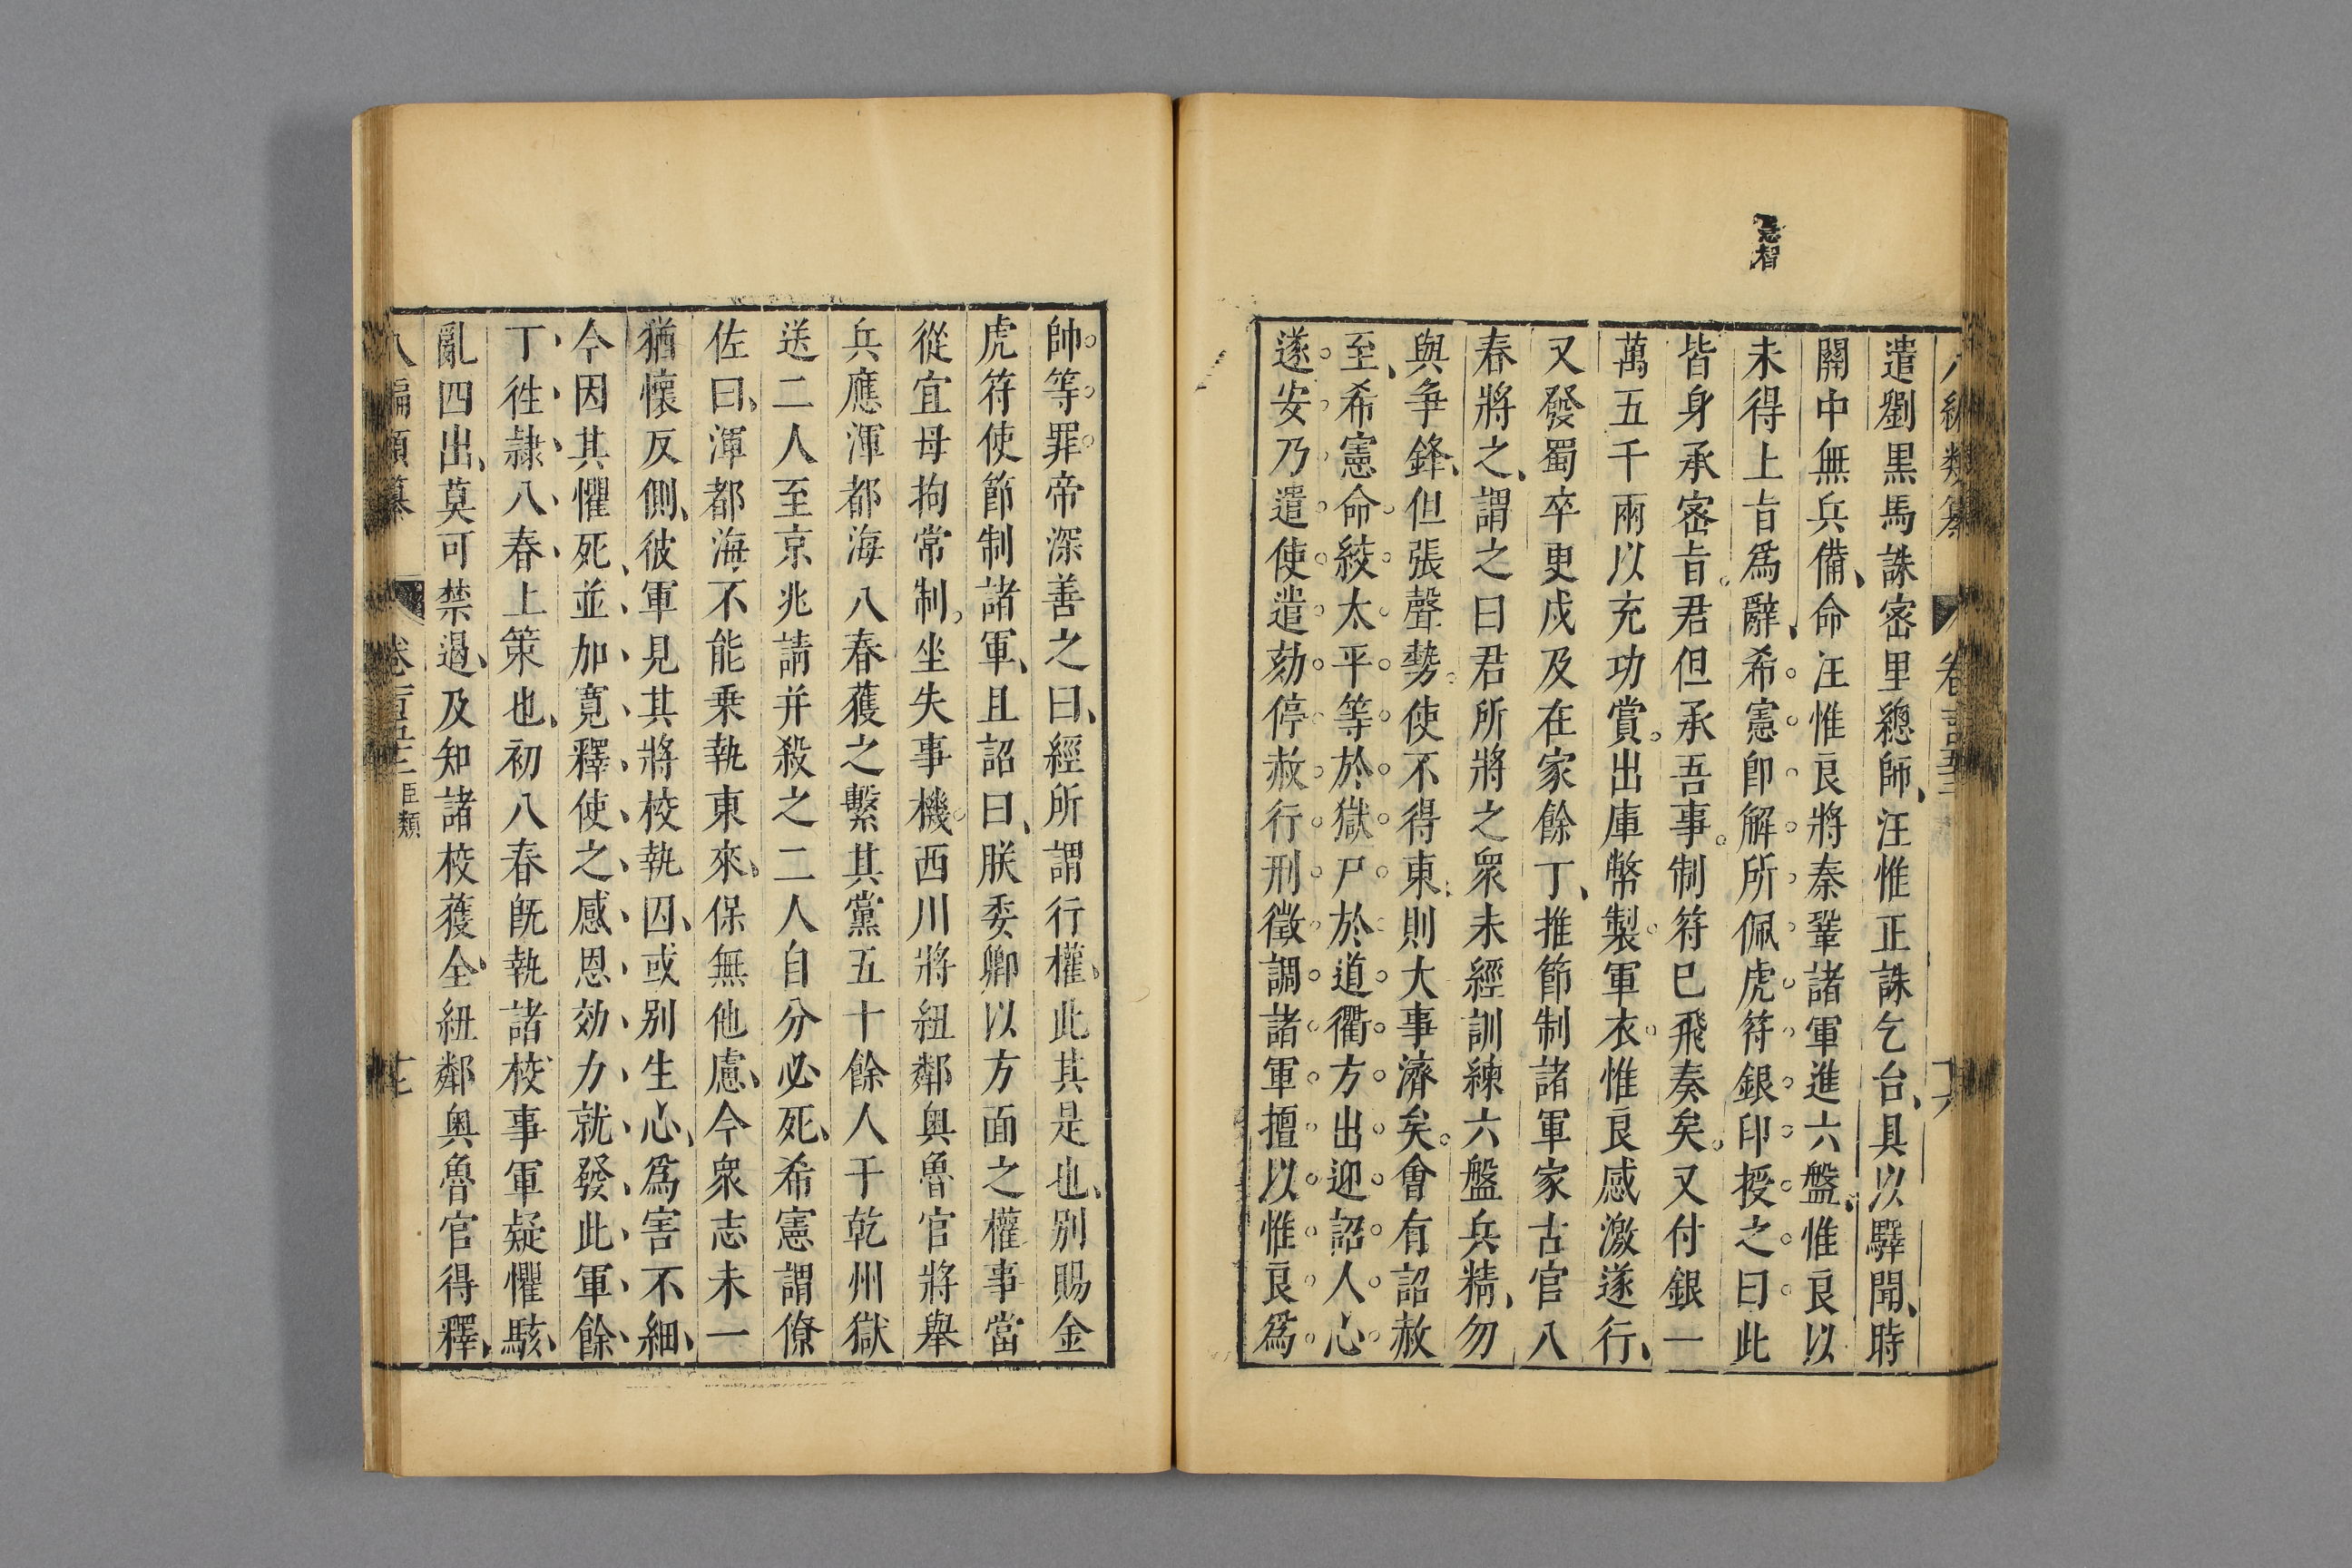 急智
八編類纂 卷一百五十三 十六
遣劉黒馬誅宻里䅾師汪惟正誅乞台具以驛聞時
關中無兵備命汪惟良將秦鞏諸軍進六盤惟良以
未得上㫖爲辭希憲卽解所佩虎符銀印授之曰此
皆身承宻㫖君但承吾事制符已飛奏矣又付銀一
萬五千兩以充功賞出庫幣製軍衣惟良感激遂行
又發蜀卒更戍及在家餘丁推節制諸軍家古官八
春將之謂之曰君所將之衆未經訓練六盤兵精勿
與爭鋒但張聲勢使不得東則大事濟矣會有詔赦
至希憲命絞太平等於獄尸於道衢方出迎詔人心
遂安乃遣使遣劾停赦行刑徵調諸軍擅以惟良爲
帥等罪帝深善之曰經所謂行權此其是也別賜金
虎符使節制諸軍且詔曰朕委卿以方面之權事當
從宜毋拘常制坐失事機西川將紐鄰奥魯官將舉
兵應渾都海八春獲之繫其黨五十餘人于乾州獄
送二人至京兆請并殺之二人自分必死希憲謂僚
佐曰渾都海不能乗執東來保無他慮今衆志未一
猶懷反側彼軍見其將校執囚或别生心爲害不細
今因其懼死並加寛釋使之感恩効力就發此軍餘
丁徃隷八春上策也初八春旣執諸校事軍疑懼駭
亂四出莫可禁遏及知諸校獲全紐鄰奥魯官得釋
八編類纂 卷一百五十三 臣類 十七